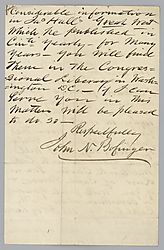 Considerable information
in Jas Hall's Great West
Which he published in
Cin'ti Yearly – for Many
Years – You Will find
Them in the Congres-
sional Library in Wash-
ington D.C. – If I can
Serve You in this
Matter Will be pleased
to do so –
Respectfully
John N. Bofinger